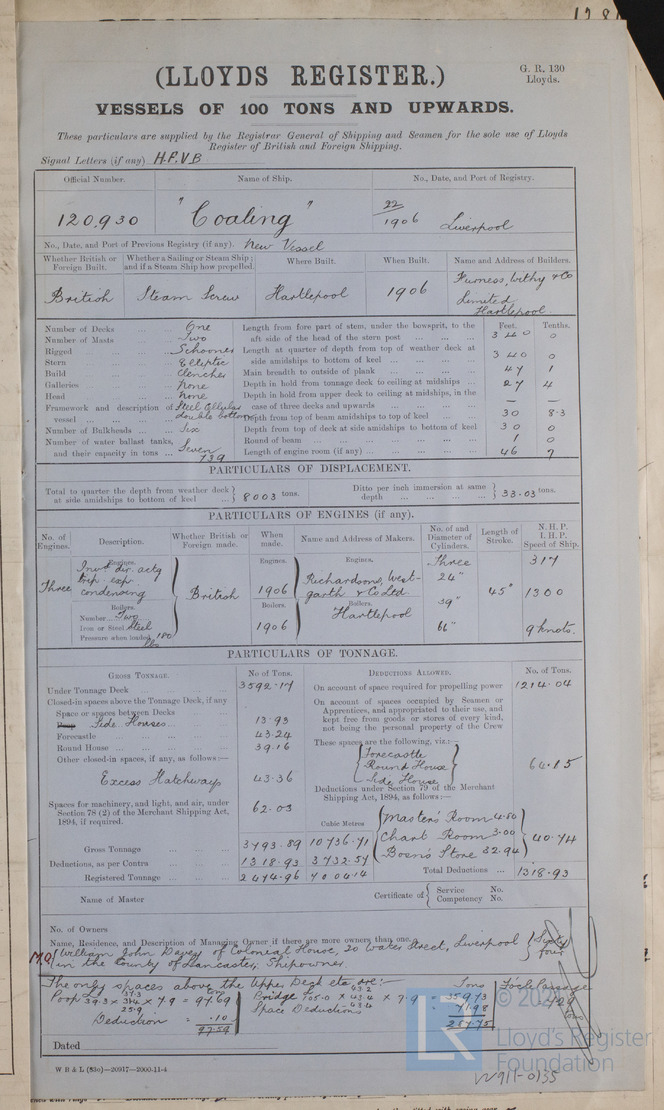 (LLOYDS REGISTER.)
G. R. 130
Lloyds.
VESSELS OF 100 TONS AND UPWARDS.
These particulars are supplied by the Registrar General of Shipping and Seamen for the sole use of Lloyds
Register of British and Foreign Shipping.
Signal Letters (if any) H.P.V.B
Official Number. Name of Ship. No., Date, and Port of Registry.
120,930 "Coaling" 22/1906 Liverpool
No., Date, and Port of Previous Registry (if any). New Vessel
Whether British or Foreign Built. Whether a Sailing or Steam Ship; and if a Steam Ship how propelled. Where Built. When Built. Name and Address of Builders.
British Steam Screw Hartlepool 1906 Furness, Withy & Co Limited Hartlepool
Number of Decks ... One
Number of Masts ... Two
Rigged ... Schooner
Stern ... Elliptic
Build ... Clencher
Galleries ... None
Head ... None
Framework and description of vessel ... Steel Cellular double bottom
Number of Bulkheads ... Six
Number of water ballast tanks, and their capacity in tons ... Seven 739
Feet. Tenths.
Length from fore part of stem, under the bowsprit, to the aft side of the head of the stern post ... 340 0
Length at quarter of depth from top of weather deck at side amidships to bottom of keel ... 340 0
Main breadth to outside of plank ... 47 1
Depth in hold from tonnage deck to ceiling at midships ... 27 4
Depth in hold from upper deck to ceiling at midships, in the case of three decks and upwards ... — —
Depth from top of beam amidships to top of keel ... 30 8.3
Depth from top of deck at side amidships to bottom of keel 30 0
Round of beam ... 1 0
Length of engine room (if any) ... 46 7
PARTICULARS OF DISPLACEMENT.
Total to quarter the depth from weather deck at side amidships to bottom of keel ... } 8003 tons.
Ditto per inch immersion at same depth ... } 33.03 tons.
PARTICULARS OF ENGINES (if any).
No. of Engines. Description. Whether British or Foreign made. When made. Name and Address of Makers. No. of and Diameter of Cylinders. Length of Stroke. N.H.P. I.H.P. Speed of Ship.
Engines. Engines. Engines. Three 317
Three Invtd dir. actg trip. exp. condensing British 1906 Richardsons, West-garth & Co Ltd. Hartlepool 24" 45" 1300
Boilers. Boilers. Boilers. 39"
Number Two
Iron or Steel Steel 1906 66" 9 knots.
Pressure when loaded 180 lbs
PARTICULARS OF TONNAGE.
GROSS TONNAGE. No of Tons.
Under Tonnage Deck ... 3592.17
Closed-in spaces above the Tonnage Deck, if any
Space or spaces between Decks
Poop Side Houses ... 13.93
Forecastle ... 43.24
Round House ... 39.16
Other closed-in spaces, if any, as follows:—
Excess Hatchways 43.36
Spaces for machinery, and light, and air, under Section 78 (2) of the Merchant Shipping Act, 1894, if required. 62.03
Cubic Metres
Gross Tonnage 3793.89 10736.71
Deductions, as per Contra ... 1318.93 3732.57
Registered Tonnage ... 2474.96 7004.14
DEDUCTIONS ALLOWED. No. of Tons.
On account of space required for propelling power 1214.04
On account of spaces occupied by Seamen or Apprentices, and appropriated to their use, and kept free from goods or stores of every kind, not being the personal property of the Crew
These spaces are the following, viz.:—
Forecastle
Round House
Side House
64.15
Deductions under Section 79 of the Merchant Shipping Act, 1894, as follows:—
Master's Room 4.80
Chart Room 3.00
Bosn's Store 32.94
40.74
Total Deductions ... 1318.93
Name of Master
Certificate of { Service No.
Competency No.
No. of Owners
Name, Residence, and Description of Managing Owner if there are more owners than one.
M.O. William John Davey of Colonial House, 20 Water Street, Liverpool
in the County of Lancaster, Shipowner. Sixty four
The only spaces above the Upper Deck etc are:—
Tons
Deduction = .10
97.59
Space Deductions
Dated
© 20
Lloyd's Register
Foundation
W B & L (83o)—20917—2000-11-4
W911-0155